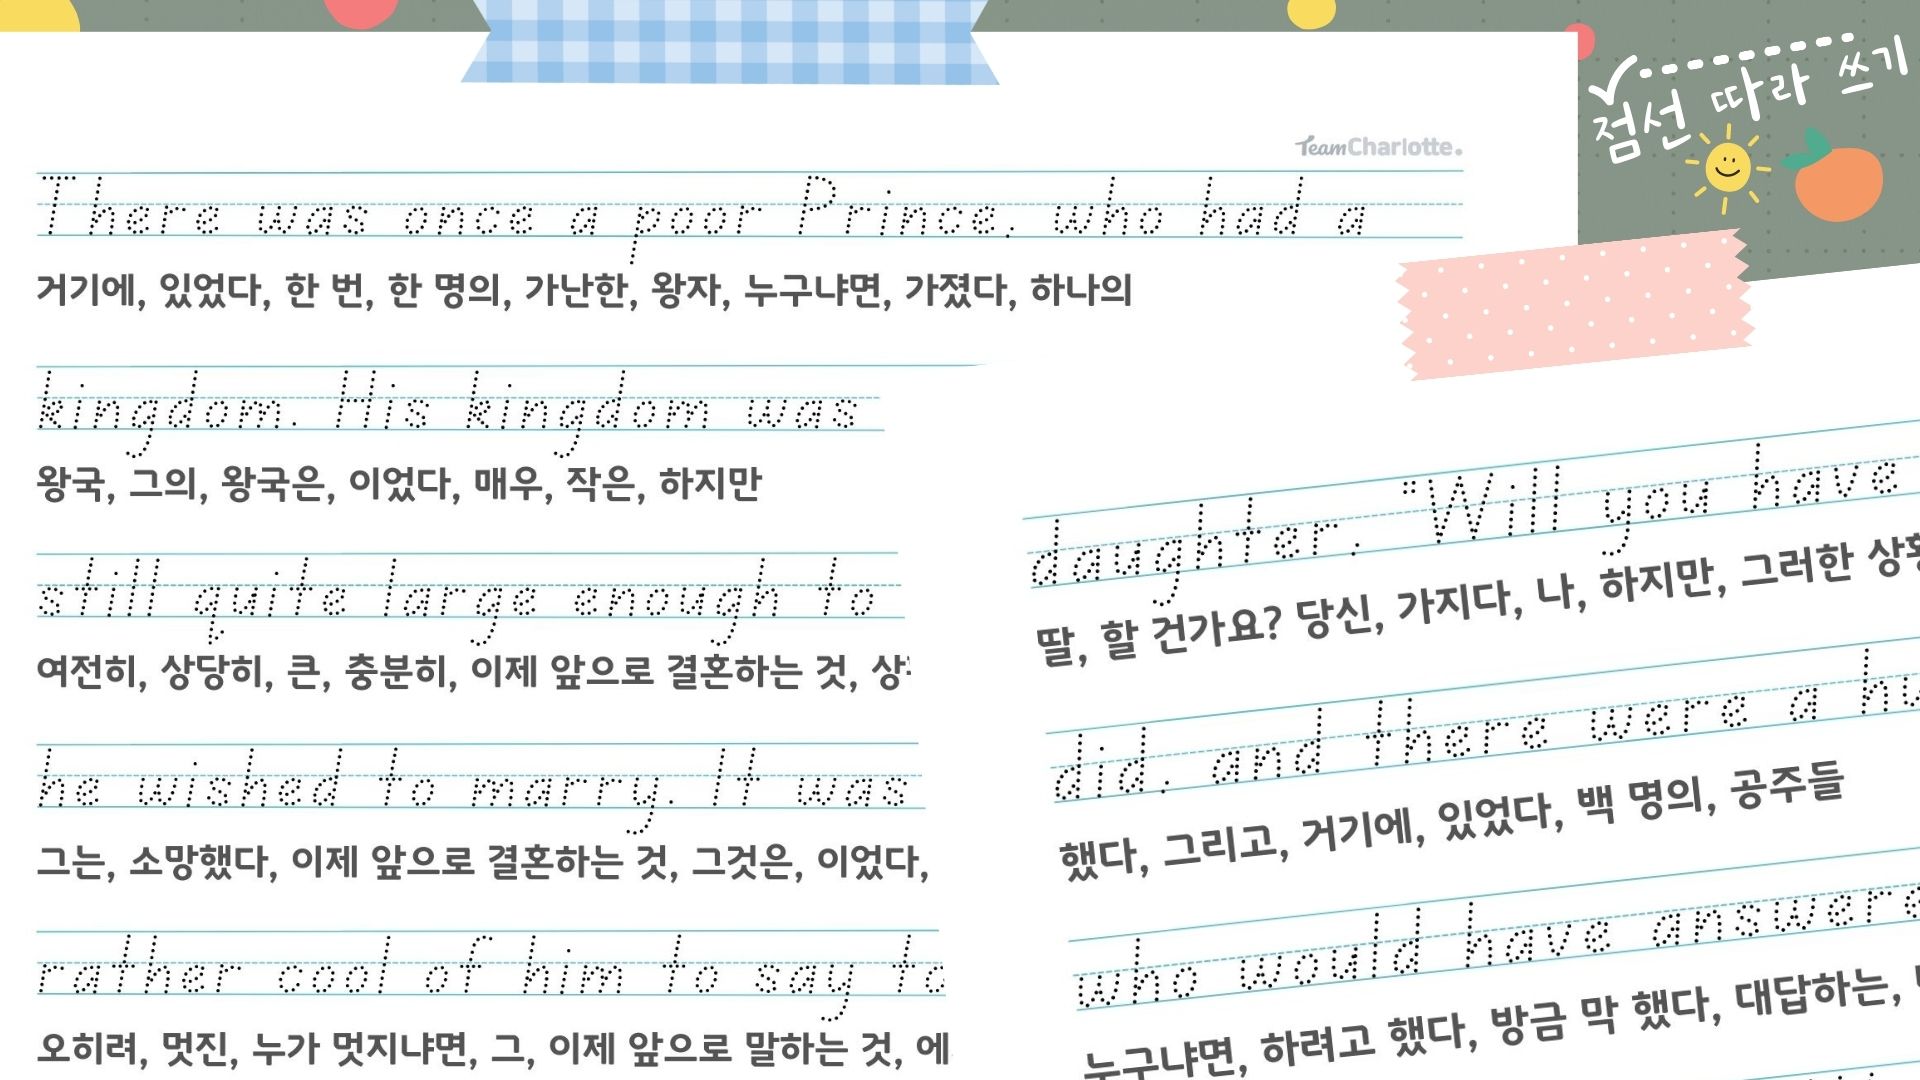 점선 따라 쓰기
TeamCharlotte.
There was once a poor Prince, who had a
거기에, 있었다, 한 번, 한 명의, 가난한, 왕자, 누구냐면, 가졌다, 하나의
kingdom. His kingdom was
왕국, 그의, 왕국은, 이었다, 매우, 작은, 하지만
still quite large enough to
여전히, 상당히, 큰, 충분히, 이제 앞으로 결혼하는 것,
he wished to marry. It was
그는, 소망했다, 이제 앞으로 결혼하는 것, 그것은, 이었다,
rather cool of him to say to
오히려, 멋진, 누가 멋지냐면, 그, 이제 앞으로 말하는 것, 에
daughter, "Will you have
딸, 할 건가요? 당신, 가지다, 나, 하지만, 그러한
did, and there were a
했다, 그리고, 거기에, 있었다, 백 명의, 공주들
who would have
누구냐면, 하려고 했다, 방금 막 했다, 대답하는,